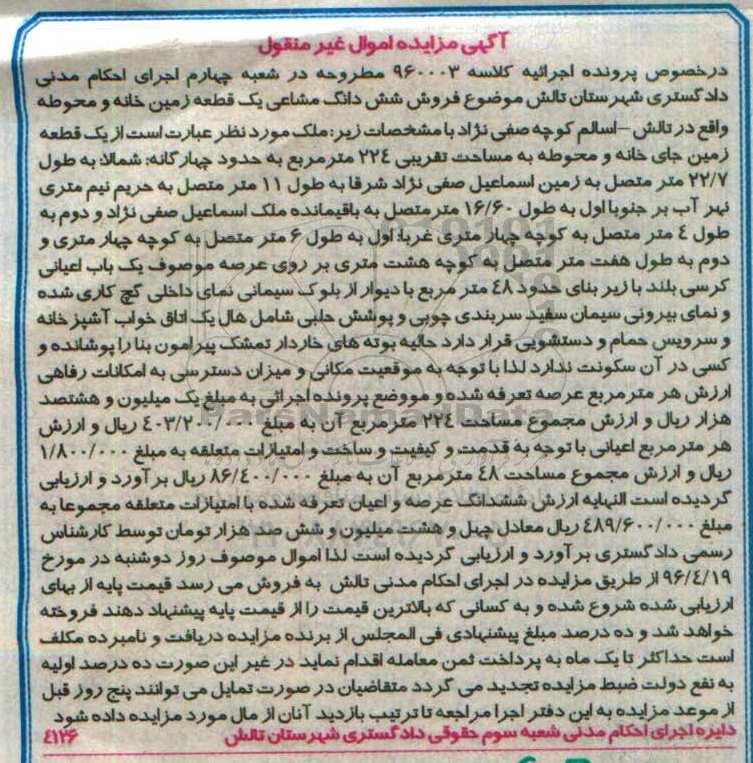 آگهی مزایده اموال غیر منقول
درخصوص پرونده اجرائیه کلاسه ۹۶۰۰۰۳ مطروحه در شعبه چهارم اجرای احکام مدنی
دادگستری شهرستان تالش موضوع فروش شش دانگ مشاعی یک قطعه زمین خانه و محوطه
واقع در تالش –اسالم کوچه صفی نژاد با مشخصات زیر: ملک مورد نظر عبارت است از یک قطعه
زمین جای خانه و محوطه به مساحت تقریبی ۲۲٤ مترمربع به حدود چهارگانه: شمالا: به طول
۲۲/۷ متر متصل به زمین اسماعیل صفی نژاد شرقا به طول ۱۱ متر متصل به حریم نیم متری
نهر آب بر جنوبا اول به طول ۱۶/۶۰ متر متصل به باقیمانده ملک اسماعیل صفی نژاد و دوم به
طول ٤ متر متصل به کوچه چهار متری غربا: اول به طول ۶ متر متصل به کوچه چهار متری و
دوم به طول هفت متر متصل به کوچه هشت متری بر روی عرصه موصوف یک باب اعیانی
کرسی بلند با زیر بنای حدود ٤۸ متر مربع با دیوار از بلوک سیمانی نمای داخلی گچ کاری شده
و نمای بیرونی سیمان سفید سربندی چوبی و پوشش حلبی شامل هال یک اتاق خواب آشپزخانه
و سرویس حمام و دستشویی قرار دارد حالیه بوته های خاردار تمشک پیرامون بنا را پوشانده و
کسی در آن سکونت ندارد لذا با توجه به موقعیت مکانی و میزان دسترسی به امکانات رفاهی
ارزش هر متر مربع عرصه تعرفه شده و مووضع پرونده اجرائی به مبلغ یک میلیون و هشتصد
هزار ریال و ارزش مجموع مساحت ۲۲٤ مترمربع آن به مبلغ ٤۰۳/۲۰۰/۰۰۰ ریال و ارزش
هر متر مربع اعیانی با توجه به قدمت و کیفیت و ساخت و امتیازات متعلقه به مبلغ ۱/۸۰۰/۰۰۰
ریال و ارزش مجموع مساحت ٤۸ مترمربع آن به مبلغ ۸۶/٤۰۰/۰۰۰ ریال برآورد و ارزیابی
گردیده است النهایه ارزش ششدانگ عرصه و اعیان تعرفه شده با امتیازات متعلقه مجموعا به
مبلغ ٤۸۹/۶۰۰/۰۰۰ ریال معادل چهل و هشت میلیون و شش صد هزار تومان توسط کارشناس
رسمی دادگستری برآورد و ارزیابی گردیده است لذا اموال موصوف روز دوشنبه در مورخ
۹۶/٤/۱۹ از طریق مزایده در اجرای احکام مدنی تالش به فروش می رسد قیمت پایه از بهای
ارزیابی شده شروع شده و به کسانی که بالاترین قیمت را از قیمت پایه پیشنهاد دهند فروخته
خواهد شد و ده درصد مبلغ پیشنهادی فی المجلس از برنده مزایده دریافت و نامبرده مکلف
است حداکثر تا یک ماه به پرداخت ثمن معامله اقدام نماید در غیر این صورت ده درصد اولیه
به نفع دولت ضبط مزایده تجدید می گردد متقاضیان در صورت تمایل می توانند پنج روز قبل
از موعد مزایده به این دفتر اجرا مراجعه تا ترتیب بازدید آنان از مال مورد مزایده داده شود
دایره اجرای احکام مدنی شعبه سوم حقوقی دادگستری شهرستان تالش ٤۱۳۶
ParsNamadData